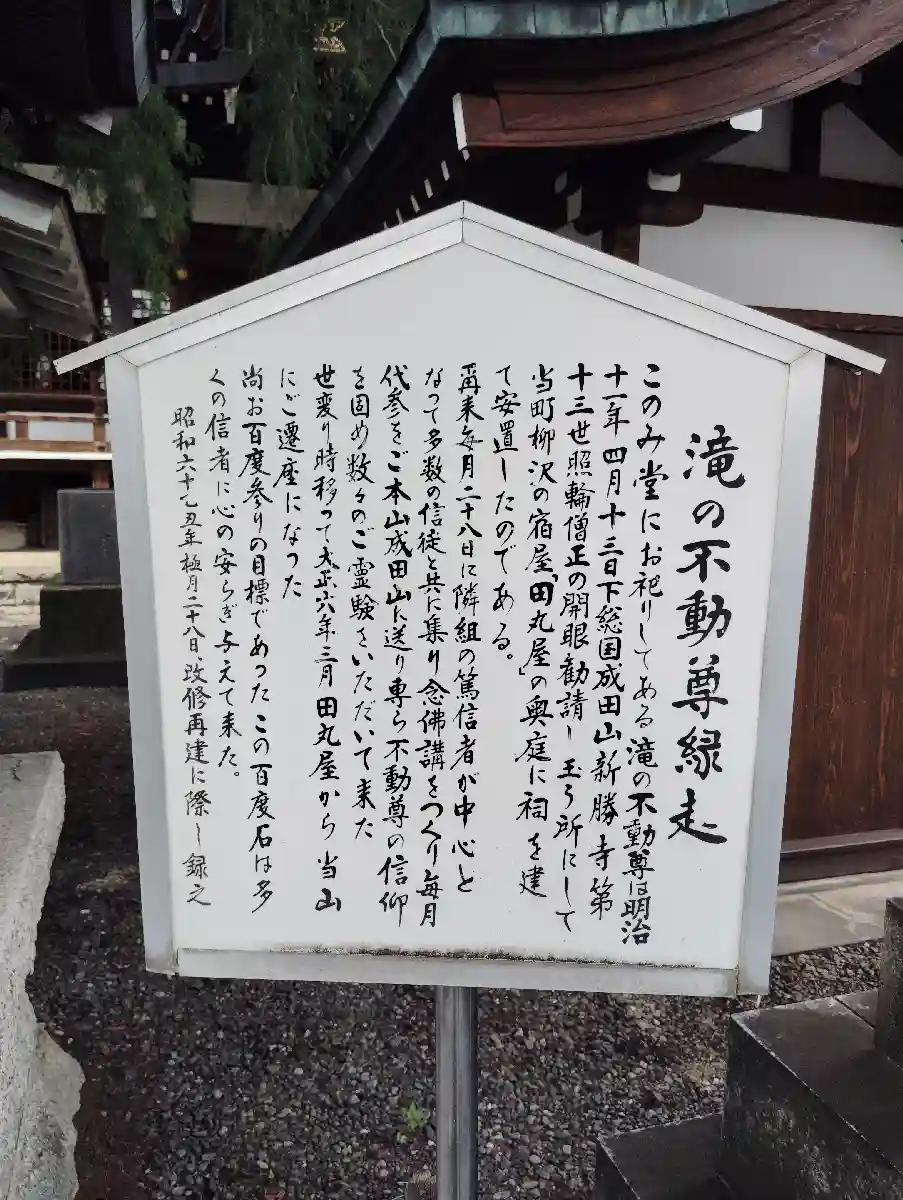 滝の不動尊縁走
このみ堂にお祀りしてある滝の不動尊は明治
十一年四月十三日下総国成田山新勝寺第
十三世照輪僧正の開眼勧請し玉う所にして
当町柳沢の宿屋「田丸屋」の奥庭に祠を建
て安置したのである。
再来毎月二十八日に隣組の篤信者が中心と
なって多数の信徒と共に集り念佛講をつくり毎月
代参をご本山成田山に送り専ら不動尊の信仰
を固め数々のご霊験をいただいて来た
世変り時移って大正六年三月田丸屋から当山
にご遷座になった
尚お百度参りの目標であったこの百度石は多
くの信者に心の安らぎ与えて来た。
昭和六十乙丑年極月二十八日、改修再建に際し録之